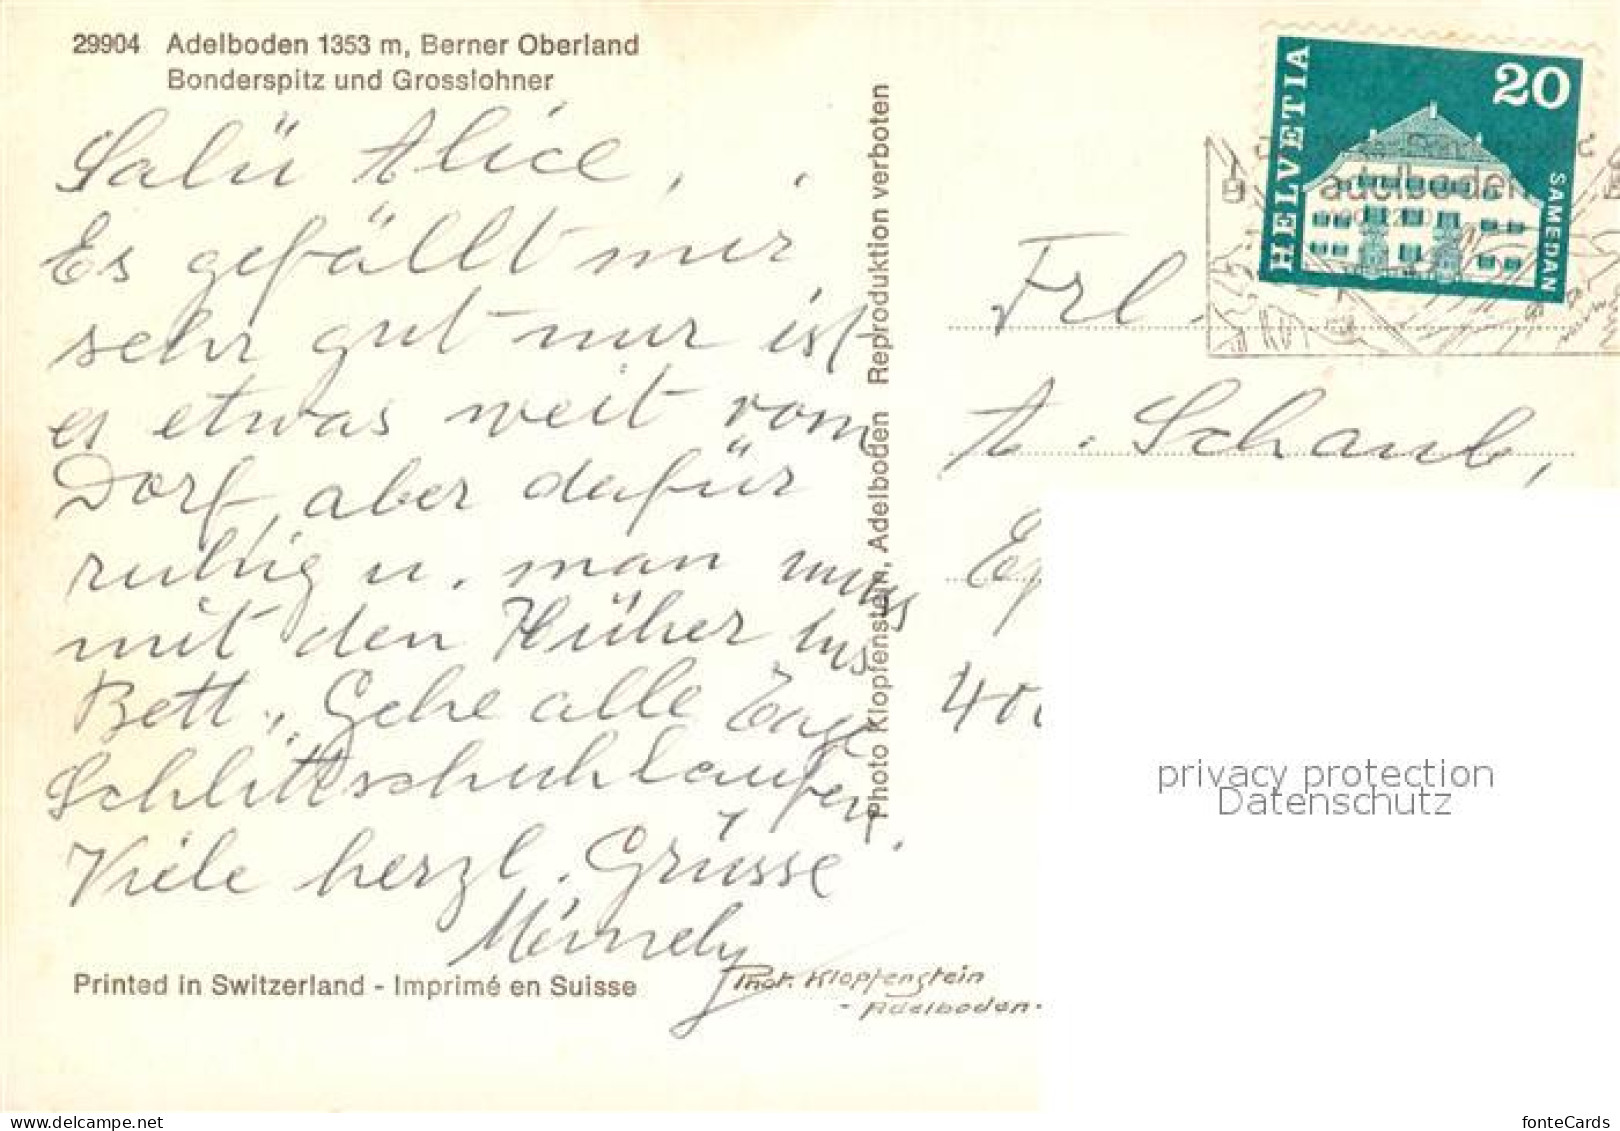 29904 Adelboden 1353 m, Berner Oberland
Bonderspitz und Grosslohner
Salü Alice,
Es gefällt mir
sehr gut nur ist
es etwas weit vom
Dorf, aber dafür
ruhig u. man muss
mit den Hüher ins
Bett. Gehe alle Tage
Schlittschuhlaufen.
Viele herzl. Grüsse
Printed in Switzerland - Imprimé en Suisse
Phot. Klopfenstein
- Adelboden -
Photo Klopfenstein, Adelboden Reproduktion verboten
HELVETIA
20
SAMEDAN
adelboden
Frl.
A. Schaub,
privacy protection
Datenschutz
fonteCards